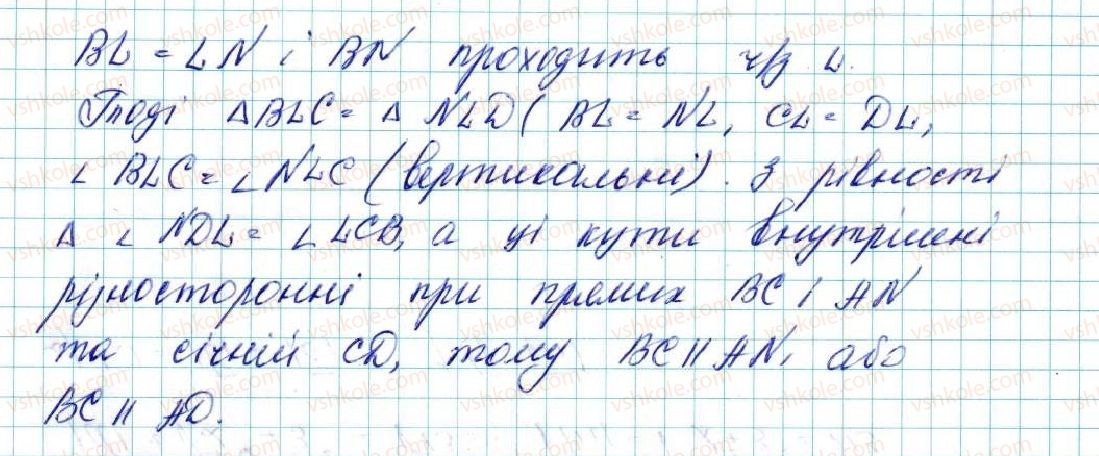 BL = LN і BN проходить ч/з L.
Тоді Δ BLC = Δ NLD ( BL = NL, CL = DL,
∠ BLC = ∠ NLC (вертикальні). З рівності
Δ ∠ NDL = ∠ LCB, а ці кути внутрішні
різносторонні при прямих BC і AN
та січній CD, тому BC || AN, або
BC || AD.
vshkole.com